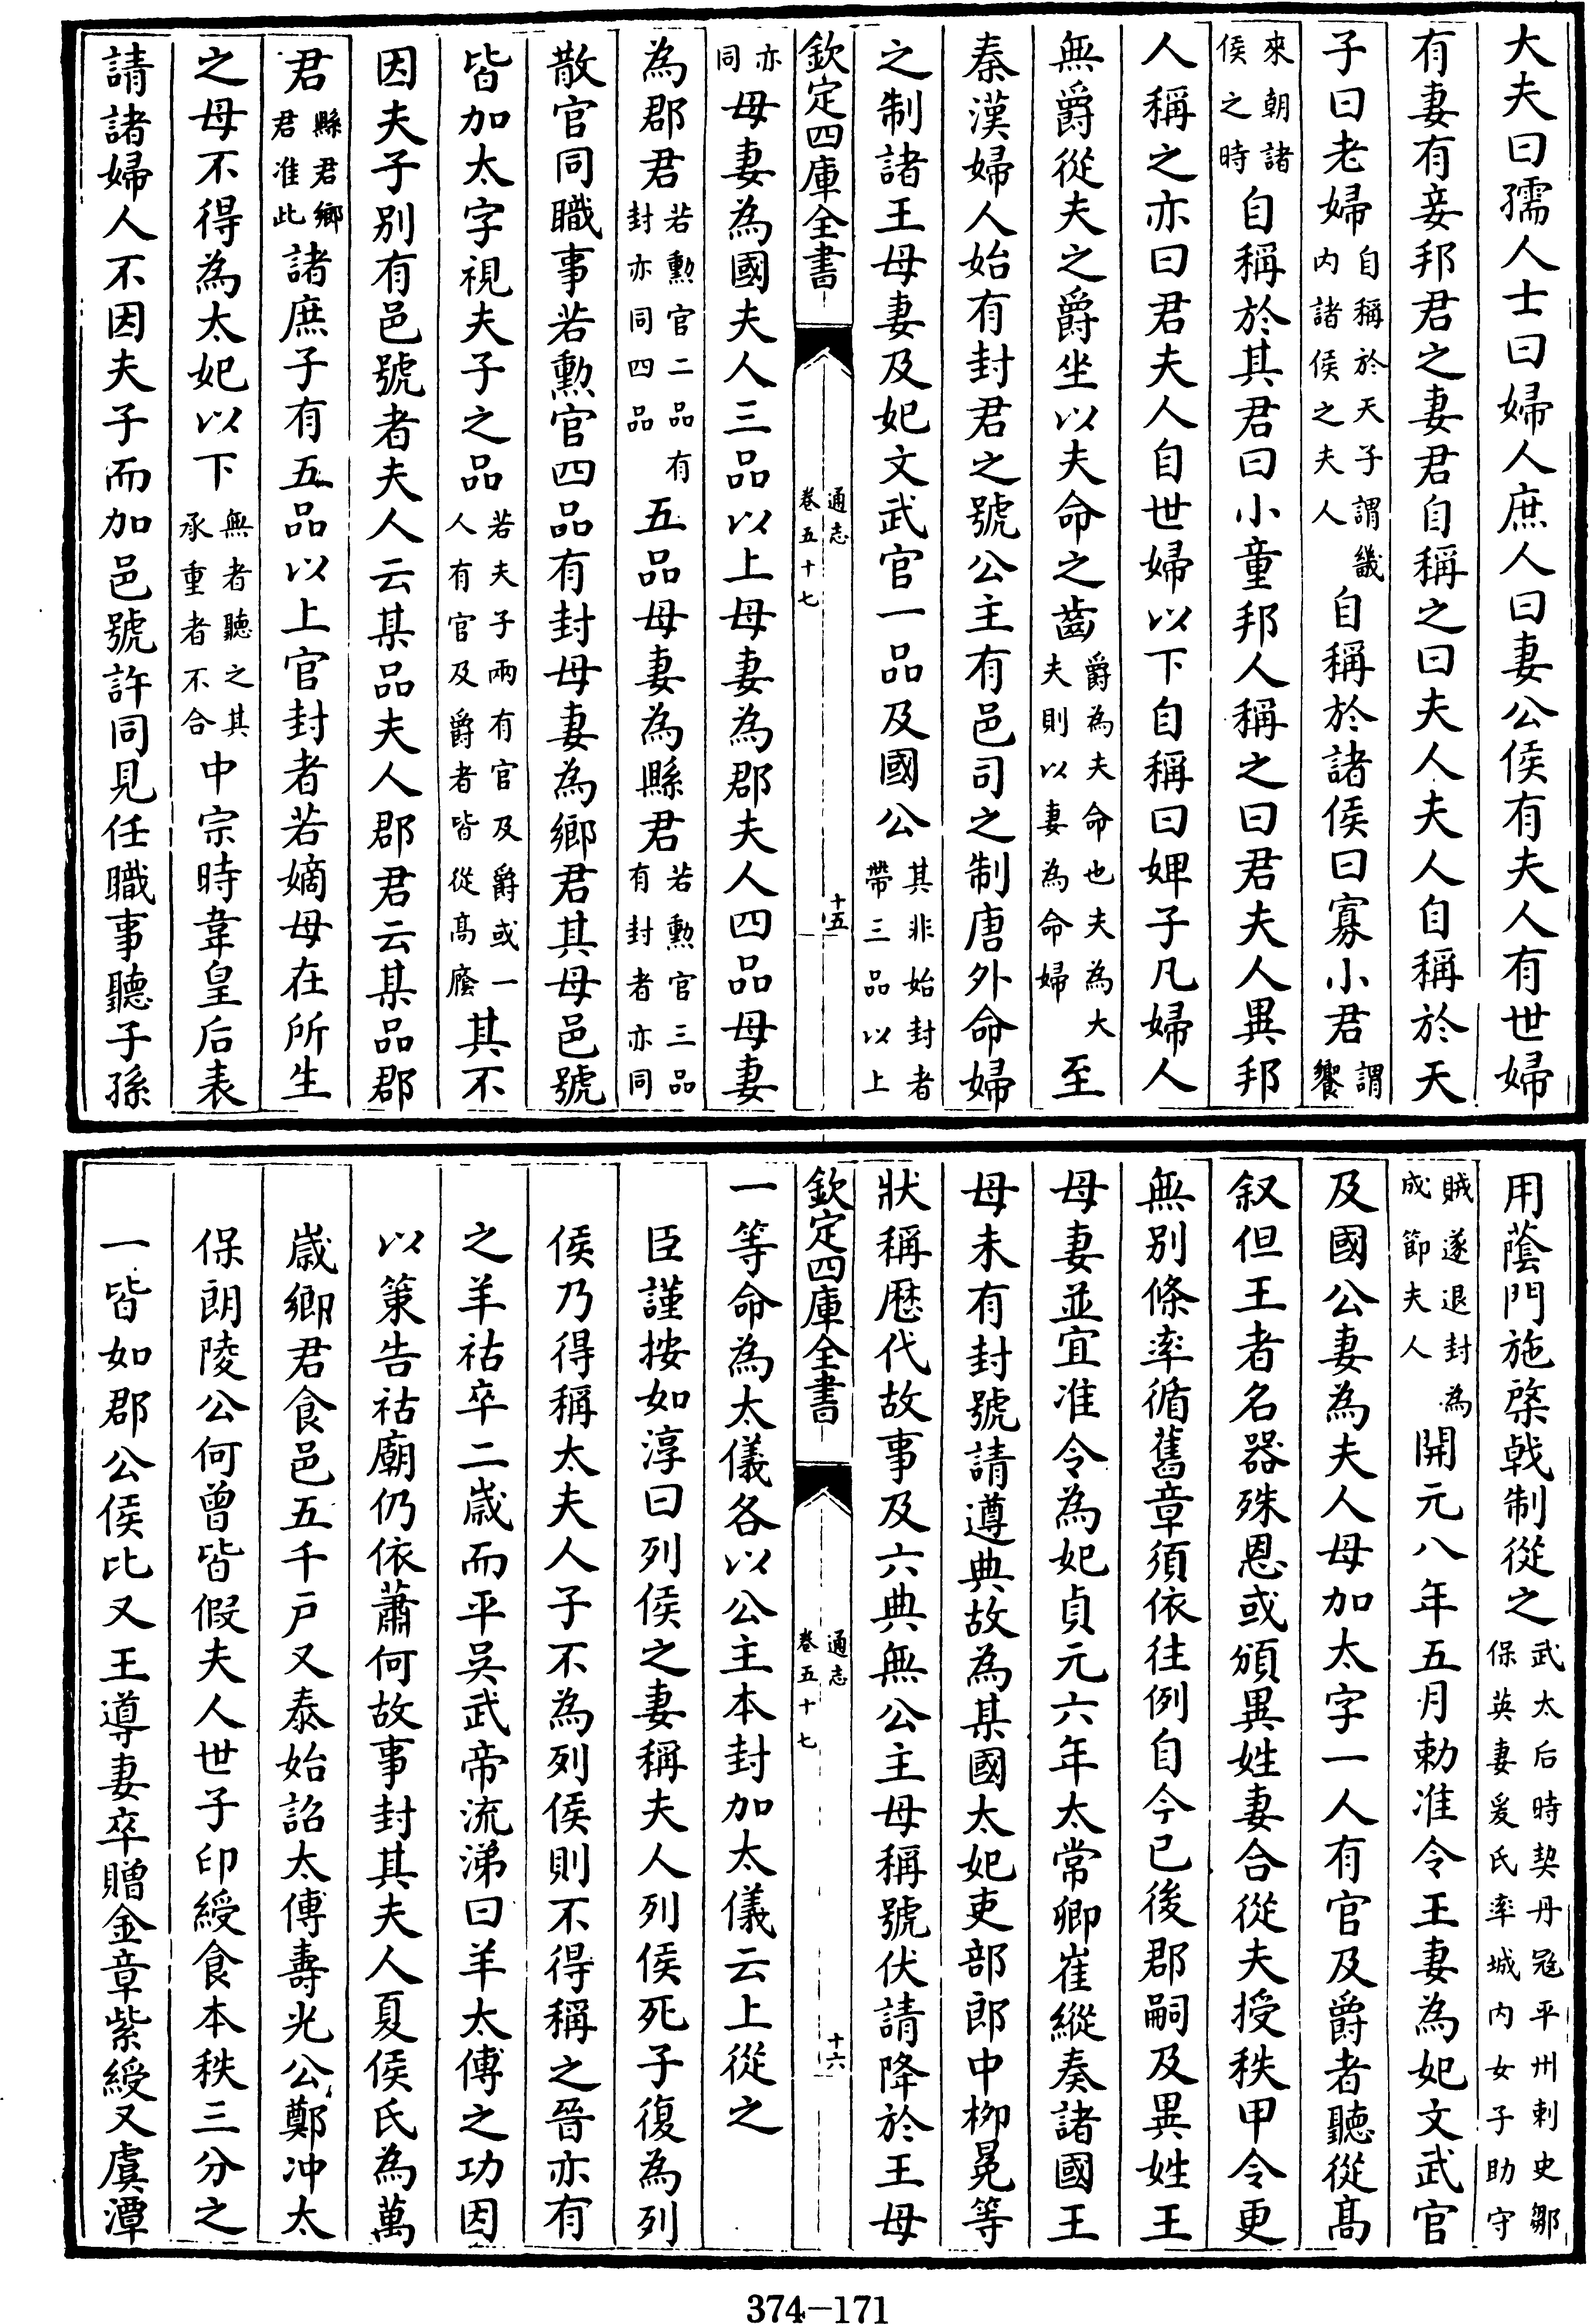 大夫曰孺人士曰婦人庶人曰妻公侯有夫人有世婦
有妻有妾邦君之妻君自稱之曰夫人夫人自稱於天
子曰老婦自稱於天子謂畿内諸侯之夫人自稱於諸侯曰寡小君謂饗
來朝諸侯之時自稱於其君曰小童邦人稱之曰君夫人異邦
人稱之亦曰君夫人自世婦以下自稱曰婢子凡婦人
無爵從夫之爵坐以夫命之齒爵為夫命也夫為大夫則以妻為命婦至
秦漢婦人始有封君之號公主有邑司之制唐外命婦
之制諸王母妻及妃文武官一品及國公其非始封者帶三品以上
欽定四庫全書 通志卷五十七 十五
亦同母妻為國夫人三品以上母妻為郡夫人四品母妻
為郡君若勲官二品有封亦同四品五品母妻為縣君若勲官三品有封者亦同
散官同職事若勲官四品有封母妻為鄉君其母邑號
皆加太字視夫子之品若夫子兩有官及爵或一人有官及爵者皆從髙廕其不
因夫子別有邑號者夫人云某品夫人郡君云某品郡
君縣君鄉君准此諸庶子有五品以上官封者若嫡母在所生
之母不得為太妃以下無者聽之其承重者不合中宗時韋皇后表
請諸婦人不因夫子而加邑號許同見任職事聽子孫
用蔭門施棨戟制從之武太后時契丹冦平州刺史鄒保英妻奚氏率城内女子助守
賊遂退封為成節夫人開元八年五月勅准令王妻為妃文武官
及國公妻為夫人母加太字一人有官及爵者聽從髙
叙但王者名器殊恩或頒異姓妻合從夫授秩甲令更
無別條率循舊章須依往例自今已後郡嗣及異姓王
母妻並宜准令為妃貞元六年太常卿崔縱奏諸國王
母未有封號請遵典故為某國太妃吏部郎中栁冕等
狀稱歴代故事及六典無公主母稱號伏請降於王母
欽定四庫全書 通志卷五十七 十六
一等命為太儀各以公主本封加太儀云上從之
臣謹按如淳曰列侯之妻稱夫人列侯死子復為列
侯乃得稱太夫人子不為列侯則不得稱之晉亦有
之羊祜卒二歲而平吳武帝流涕曰羊太傅之功因
以策告祜廟仍依蕭何故事封其夫人夏侯氏為萬
歲鄉君食邑五千户又泰始詔太傅壽光公鄭冲太
保朗陵公何曾皆假夫人世子印綬食本秩三分之
一皆如郡公侯比又王導妻卒贈金章紫綬又虞潭
374-171